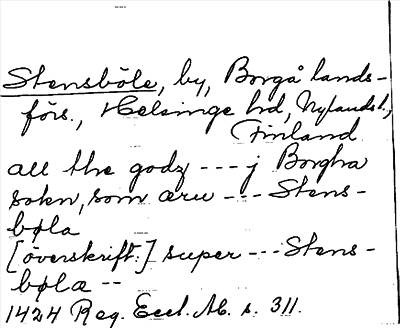 Stensböle, by, Borgå lands-
förs., Helsinge hd, Nylands l.,
Finland.
all the godz --- j Borgha
sokn, som æru --- Stens-
bøla
[överskrift:] super --- Stens-
bølæ --
1424 Reg. Eccl. Ab. s. 311.